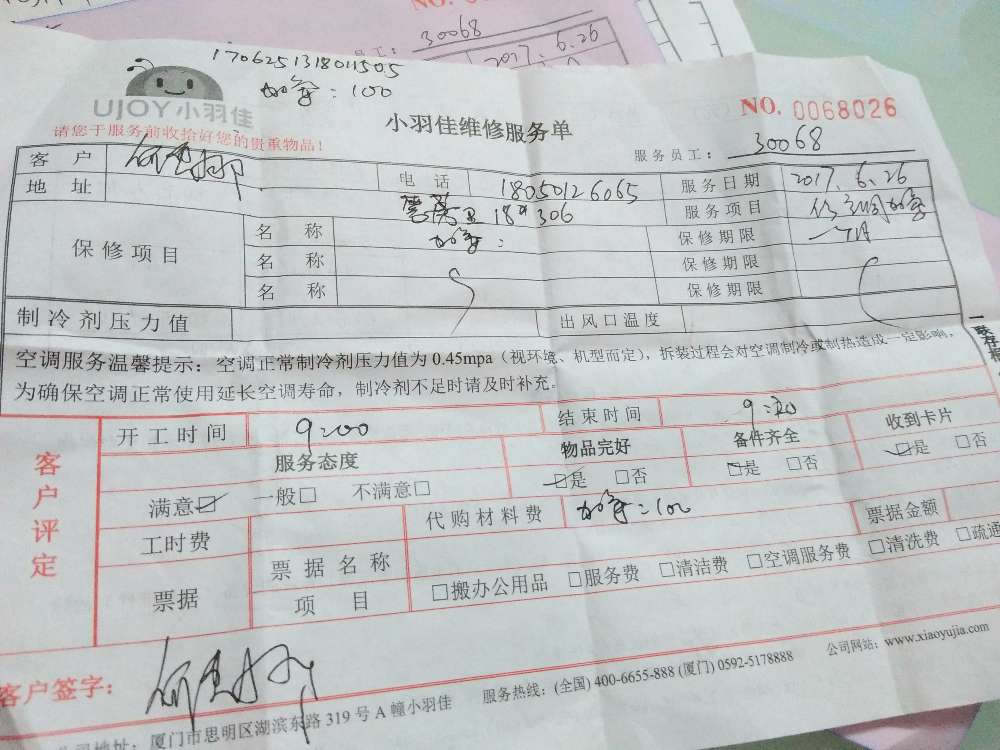 NO.
员工:
30068
2017.6.26
1706251318011505
加氟:100
UJOY小羽佳
请您于服务前收拾好您的贵重物品!
小羽佳维修服务单
NO. 0068026
服务员工: 30068
客 户
电 话 18050126065 服务日期 2017.6.26
地 址 18# 306 服务项目 加氟
保修项目 名 称 加氟: 保修期限 一个月
名 称 保修期限
名 称 保修期限
制冷剂压力值 出风口温度
空调服务温馨提示:空调正常制冷剂压力值为0.45mpa(视环境、机型而定),拆装过程会对空调制冷或制热造成一定影响。
为确保空调正常使用延长空调寿命,制冷剂不足时请及时补充。
客户评定
开工时间 9:00 结束时间 9:20
服务态度 物品完好 备件齐全 收到卡片
满意☑ 一般□ 不满意□ ☑是 □否 ☑是 □否 ☑是 □否
工时费 代购材料费 加氟:100 票据金额
票据 票据名称
项 目 □搬办公用品 □服务费 □清洁费 □空调服务费 □清洗费 □疏通
客户签字:
公司地址:厦门市思明区湖滨东路319号A幢小羽佳 服务热线:(全国) 400-6655-888 (厦门) 0592-5178888 公司网站:www.xiaoyujia.com